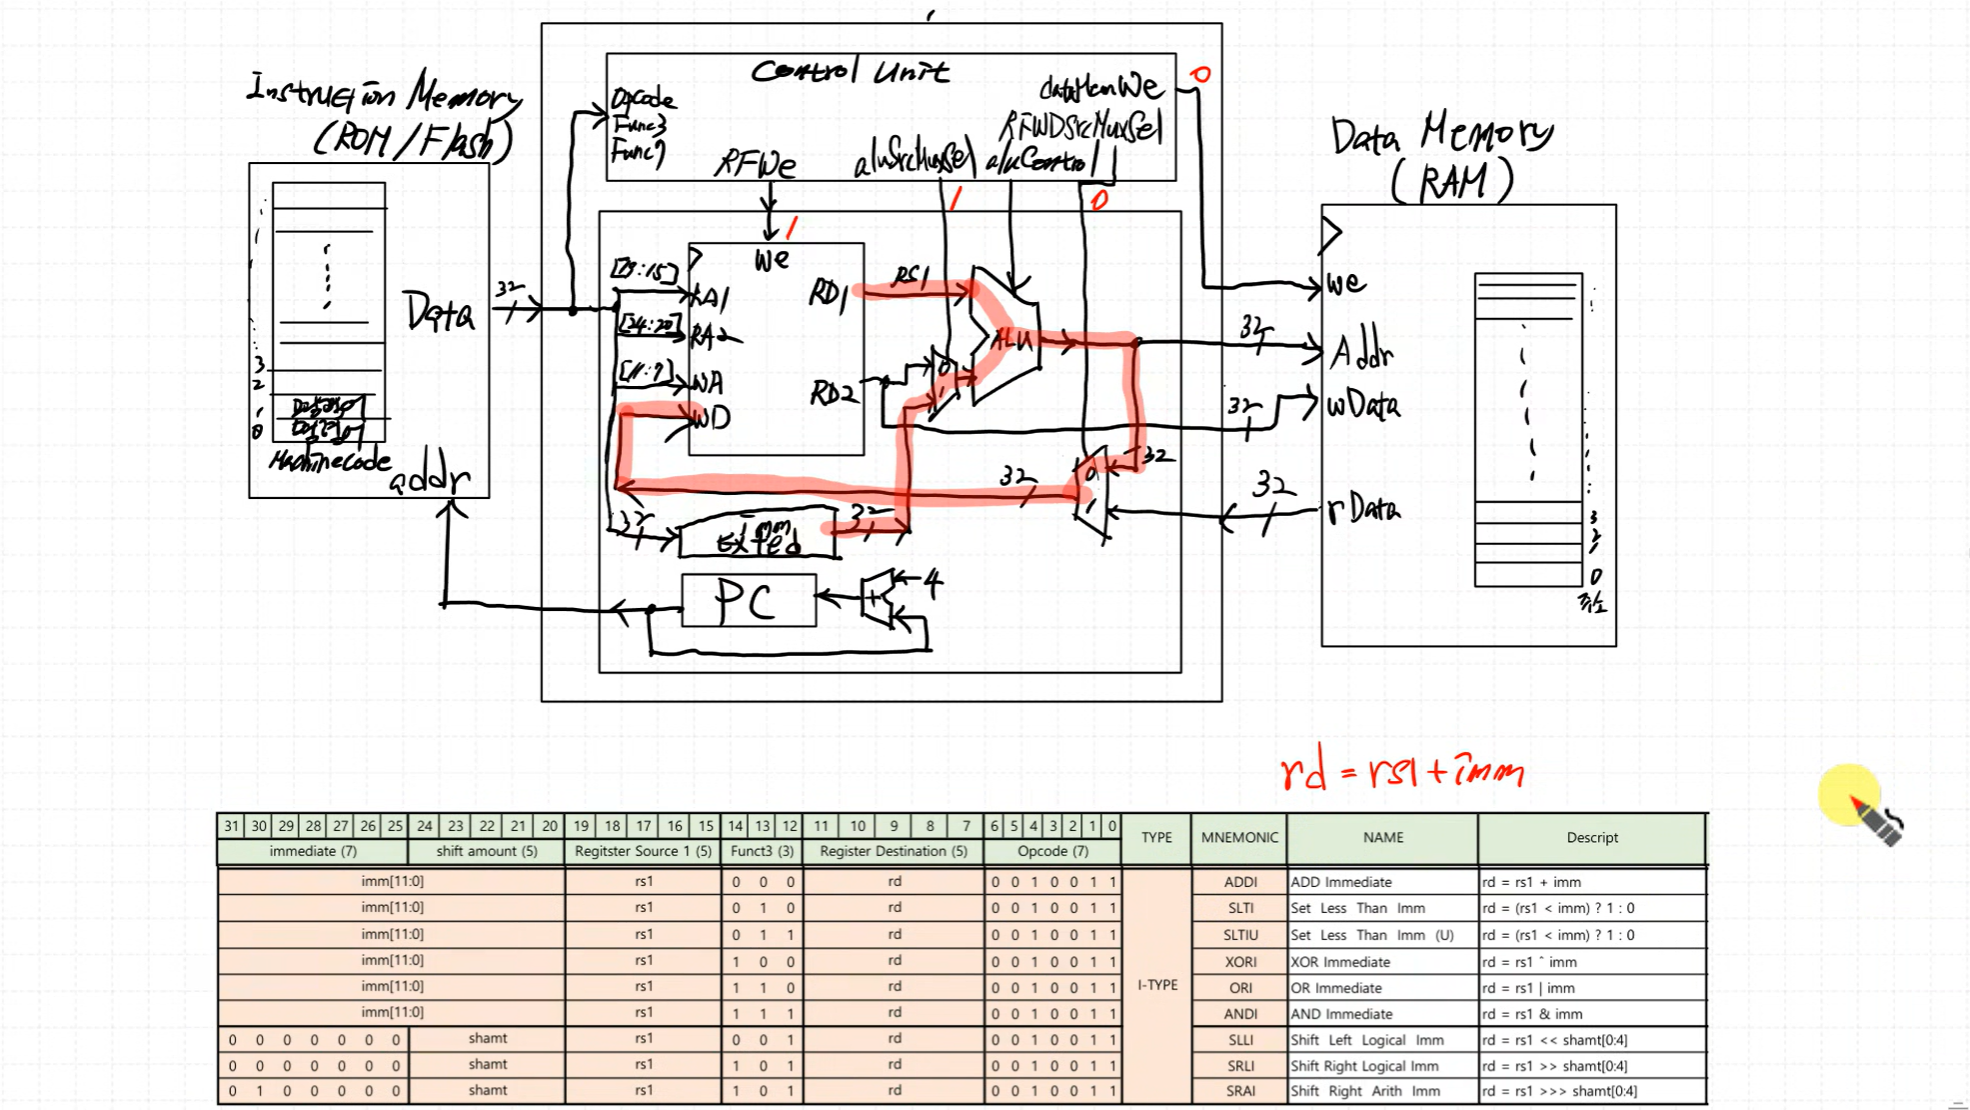 Control Unit
0
Instrucion Memory
(ROM/Flash)
Opcode
Func3
Func7
dataMemWe
RFWDSrcMuxSel
RFWe
aluSrcMuxSel
aluControl
Data Memory
(RAM)
1
1
0
we
[19:15]
RA1
RD1
RS1
we
32
Data
[24:20]
RA2
ALU
32
Addr
[11:7]
WA
RD2
0
1
32
wData
WD
3
2
1
0
Machinecode
addr
32
0
1
32
32
rData
32
imm
Exted
32
3
2
1
0
주소
PC
+
4
rd = rs1 + imm
31 30 29 28 27 26 25 24 23 22 21 20 19 18 17 16 15 14 13 12 11 10 9 8 7 6 5 4 3 2 1 0 TYPE MNEMONIC NAME Descript
immediate (7) shift amount (5) Regitster Source 1 (5) Funct3 (3) Register Destination (5) Opcode (7)
imm[11:0] rs1 0 0 0 rd 0 0 1 0 0 1 1 ADDI ADD Immediate rd = rs1 + imm
imm[11:0] rs1 0 1 0 rd 0 0 1 0 0 1 1 SLTI Set Less Than Imm rd = (rs1 < imm) ? 1 : 0
imm[11:0] rs1 0 1 1 rd 0 0 1 0 0 1 1 SLTIU Set Less Than Imm (U) rd = (rs1 < imm) ? 1 : 0
imm[11:0] rs1 1 0 0 rd 0 0 1 0 0 1 1 XORI XOR Immediate rd = rs1 ^ imm
I-TYPE
imm[11:0] rs1 1 1 0 rd 0 0 1 0 0 1 1 ORI OR Immediate rd = rs1 | imm
imm[11:0] rs1 1 1 1 rd 0 0 1 0 0 1 1 ANDI AND Immediate rd = rs1 & imm
0 0 0 0 0 0 0 shamt rs1 0 0 1 rd 0 0 1 0 0 1 1 SLLI Shift Left Logical Imm rd = rs1 << shamt[0:4]
0 0 0 0 0 0 0 shamt rs1 1 0 1 rd 0 0 1 0 0 1 1 SRLI Shift Right Logical Imm rd = rs1 >> shamt[0:4]
0 1 0 0 0 0 0 shamt rs1 1 0 1 rd 0 0 1 0 0 1 1 SRAI Shift Right Arith Imm rd = rs1 >>> shamt[0:4]